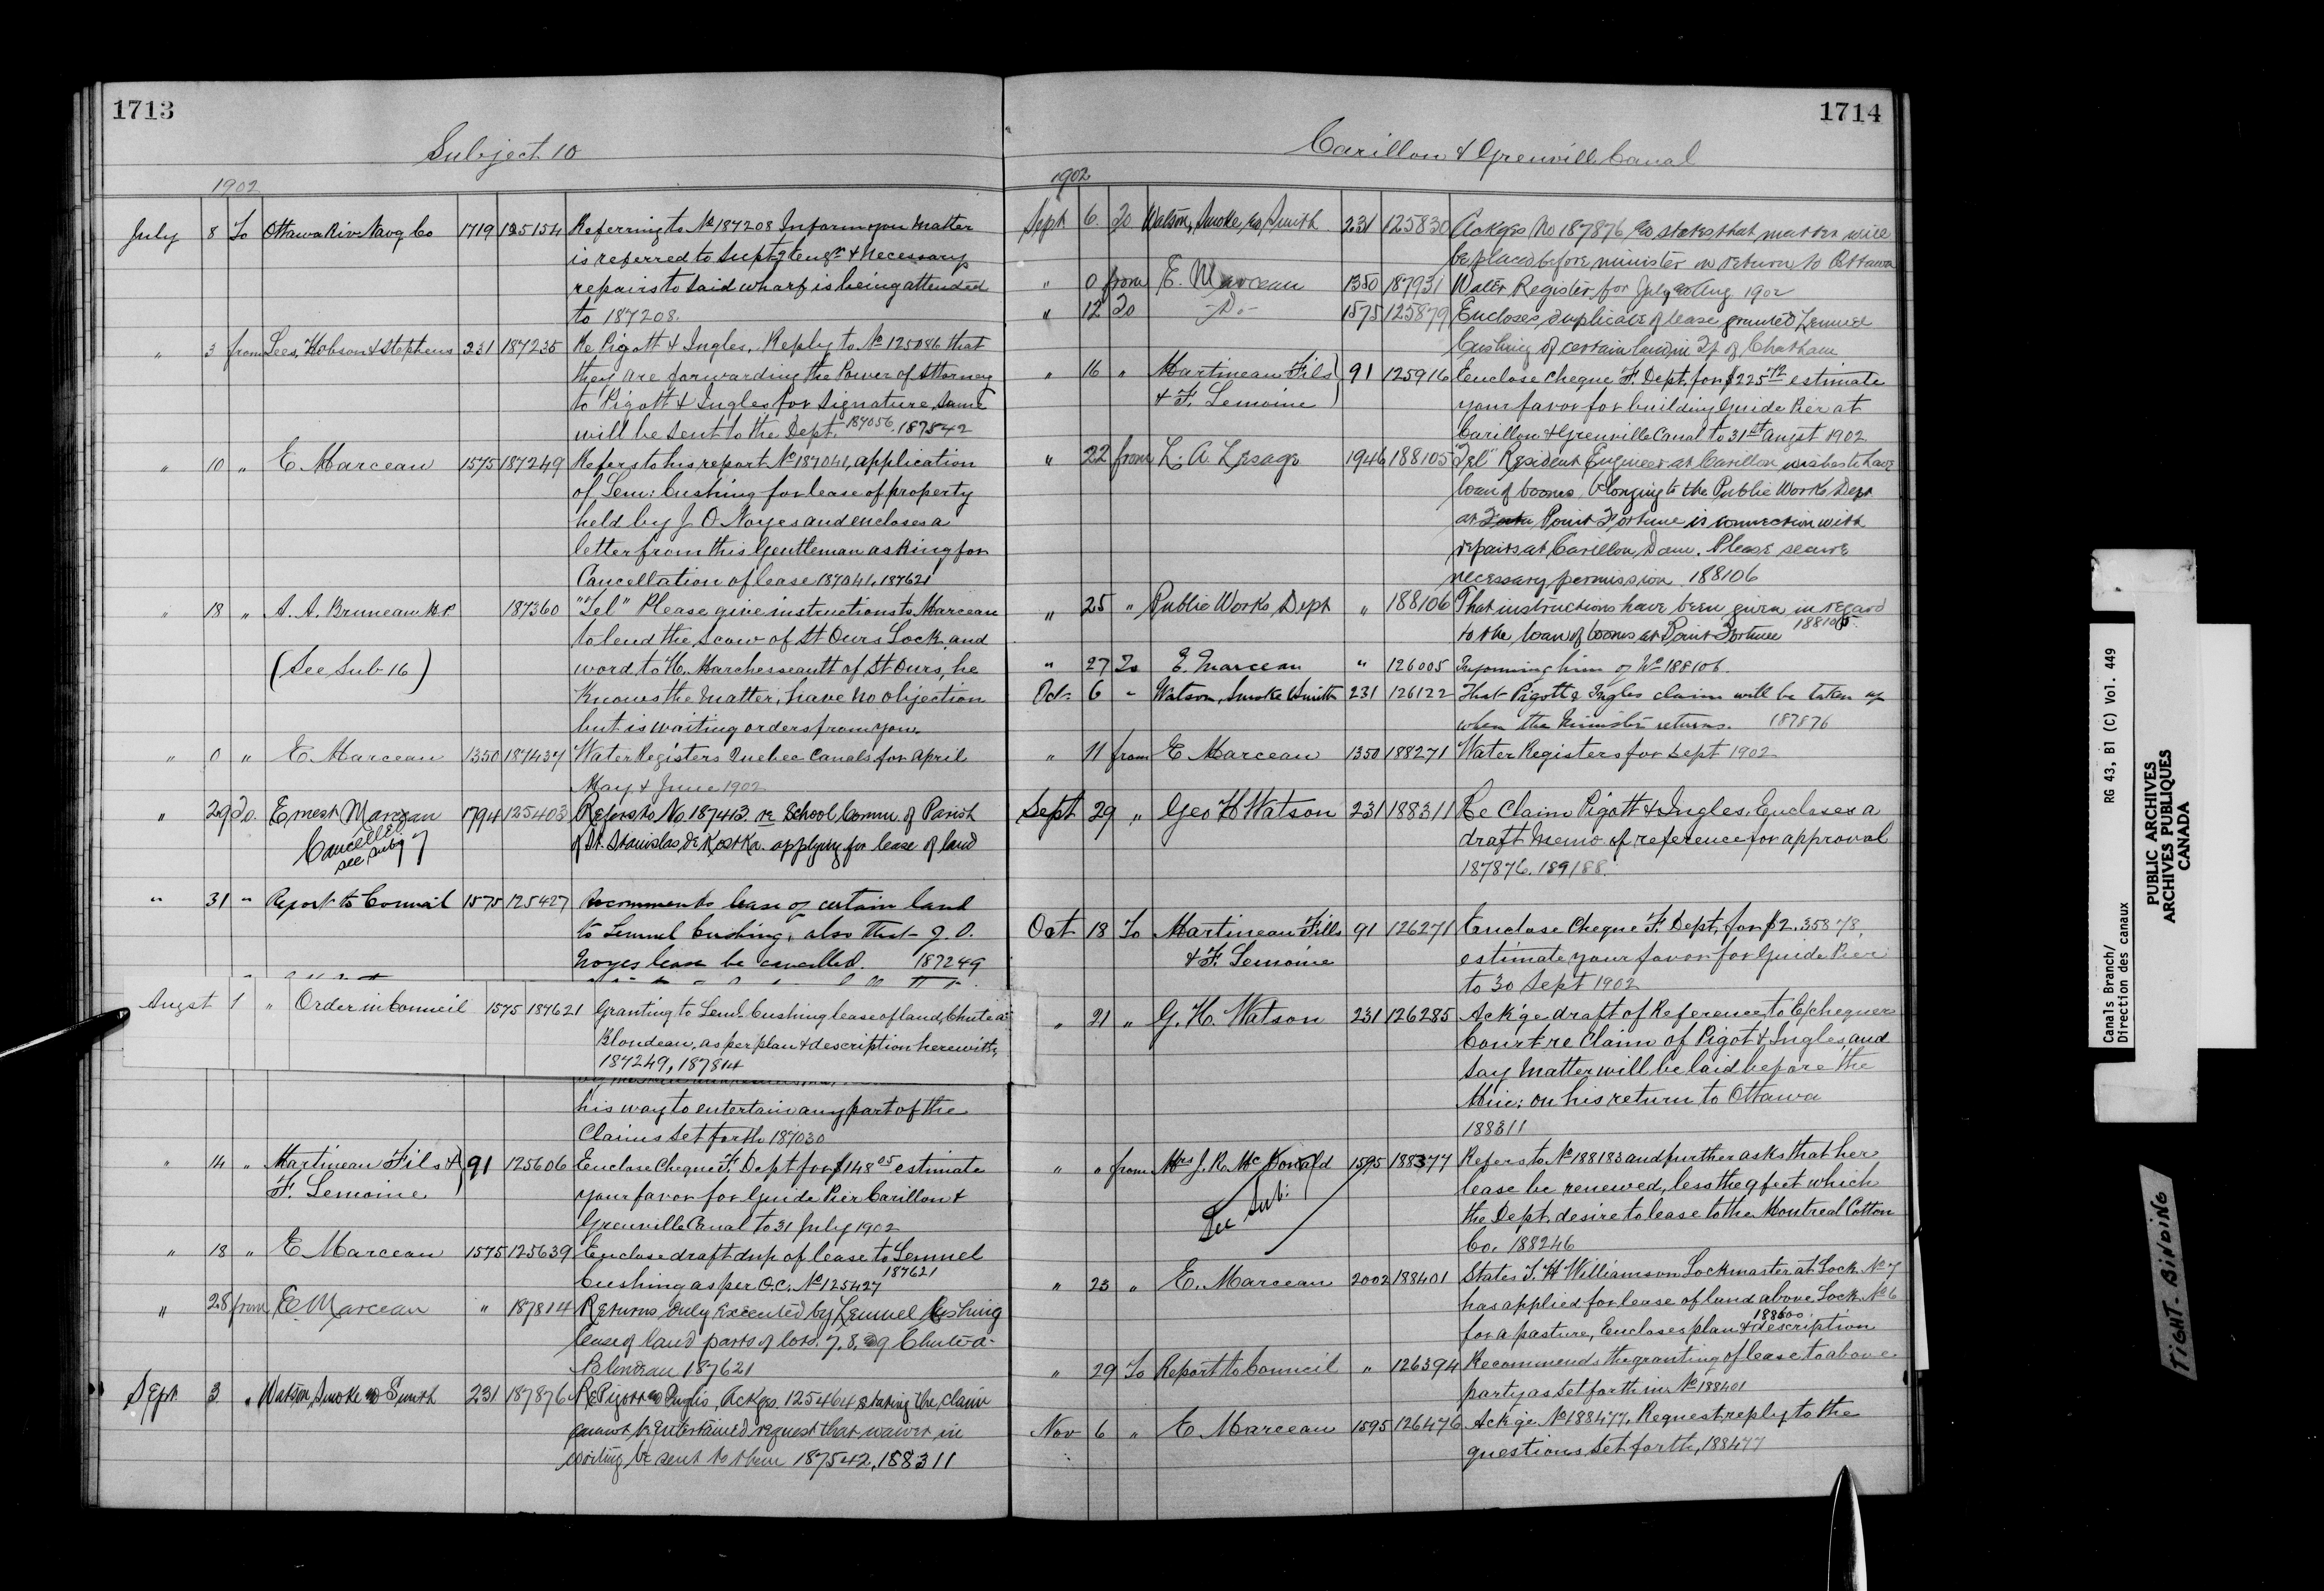 1713
Subject 10
1902
July 8 To Ottawa Riv Navg Co 1719 125154 Referring to No 187208 Inform you matter
is referred to Supt'g Engr & necessary
repairs to said wharf is being attended
to 187208.
" 3 from Lees, Hobson & Stephens 231 187235 Re Pigott & Ingles. Reply to No 125086 that
they are forwarding the Power of Attorney
to Pigott & Ingles for Signature, same
will be sent to the Dept. 187056. 187542
" 10 " E Marceau 1575 187249 Refers to his report No 187041, application
of Lem: Cushing for lease of property
held by J O Noyes and encloses a
letter from this Gentleman asking for
Cancellation of lease 187041, 187621
" 18 " A. A. Bruneau M.P. 187360 "Tel" Please give instructions to Marceau
to lend the scow of St Ours Lock and
(See Sub 16) word to H. Marchesseault of St Ours, he
knows the matter, have no objection
but is waiting orders from you.
" 0 " E. Marceau 1350 187437 Water Registers Quebec Canals for April
May & June 1902
" 29 To. Ernest Marceau 1794 125403 Refers to No. 187413. re School Comm. of Parish
Cancelled see sub 7 of St. Stanislas de Kostka. applying for lease of land
" 31 " Report to Council 1575 125427 Recommends lease of certain land
to Lemuel Cushing, also that J. O.
Noyes lease be cancelled. 187249
Augst 1 " Order in Council 1575 187621 Granting to Leml. Cushing lease of land, Chute a
Blondeau, as per plan & description herewith,
187249, 187814
his way to entertain any part of the
Claims set forth 187030
" 14 " Martineau Fils & 91 125606 Enclose Cheque F. Dept for $148 05 estimate
F. Lemoine your favor for Guide Pier Carillon &
Grenville Canal to 31 July 1902
" 18 " E Marceau 1575 125639 Enclose draft dup of lease to Lemuel
Cushing as per O.C. No 125427 187621
" 28 from E. Marceau " 187814 Returns duly executed by Lemuel Cushing
lease of land parts of lots. 7. 8. & 9 Chute-a-
Blondeau 187621
Sept 3 " Watson, Smoke & Smith 231 187876 Re Pigott & Inglis, Ackges. 125464 stating the claim
cannot be entertained request that waiver in
writing be sent to them 187542, 188311
1714
Carillon & Grenvill Canal
1902
Sept 6. To Watson, Smoke & Smith. 231 125830 Ackges No 187876 & states that matter will
be placed before minister on return to Ottawa
" 0 from E. Marceau 1350 187931 Water Register for July & Aug 1902
" 12 To -Do- 1575 125879 Encloses duplicate of lease granted Lemuel
Cushing of certain land in Tp. of Chatham
" 16 " Martineau Fils 91 125916 Enclose Cheque F. Dept. for $225 72 estimate
& F. Lemoine your favor for building Guide Pier at
Carillon & Grenville Canal to 31st Augst 1902
" 22 from L. A. Lesage 1946 188105 "Tel" Resident Engineer at Carillon wishes to have
loan of booms belonging to the Public Works Dept
at Point Fortune in connection with
repairs at Carillon Dam. Please secure
necessary permission 188106
" 25 " Public Works Dept " 188106 That instructions have been given in regard
to the loan of booms at Point Fortune 188105.
" 27 To E. Marceau " 126005 Informing him of No 188106.
Oct 6 " Watson, Smoke & Smith 231 126122 That Pigott & Ingles claim will be taken up
when the Minister returns. 187876
" 11 from E Marceau 1350 188271 Water Registers for Sept 1902
Sept 29 " Geo H Watson 231 188311 Re Claim Pigott & Ingles. Encloses a
draft Memo of reference for approval
187876. 189188.
Oct 18 To Martineau Fills 91 126271 Enclose Cheque F. Dept. for $2.358 78,
& F. Lemoine estimate your favor for Guide Pier
to 30 Sept 1902
" 21 " G. H. Watson 231 126285 Ack'ge draft of Reference to Exchequer
Court re Claim of Pigot & Ingles, and
say matter will be laid before the
Min: on his return to Ottawa
188311
" " from Mrs J. R. McDonald 1595 188377 Refers to No 188183 and further asks that her
See Sub: lease be renewed, less the 9 feet which
the Dept. desire to lease to the Montreal Cotton
Co. 188246
" 23 " E. Marceau 2002 188401 States T. H Williamson Lockmaster at Lock No 7
has applied for lease of land above Lock No 6
for a pasture, Encloses plan & description 188600
" 29 To Report to Council " 126394 Recommends the granting of lease to above
party as set forth in No 188401
Nov 6 " E Marceau 1595 126476 Ack'ge No 188477. Request reply to the
questions set forth, 188477
Canals Branch/ RG 43, B1 (C) Vol. 449
Direction des canaux
PUBLIC ARCHIVES
ARCHIVES PUBLIQUES
CANADA
TIGHT-BINDING